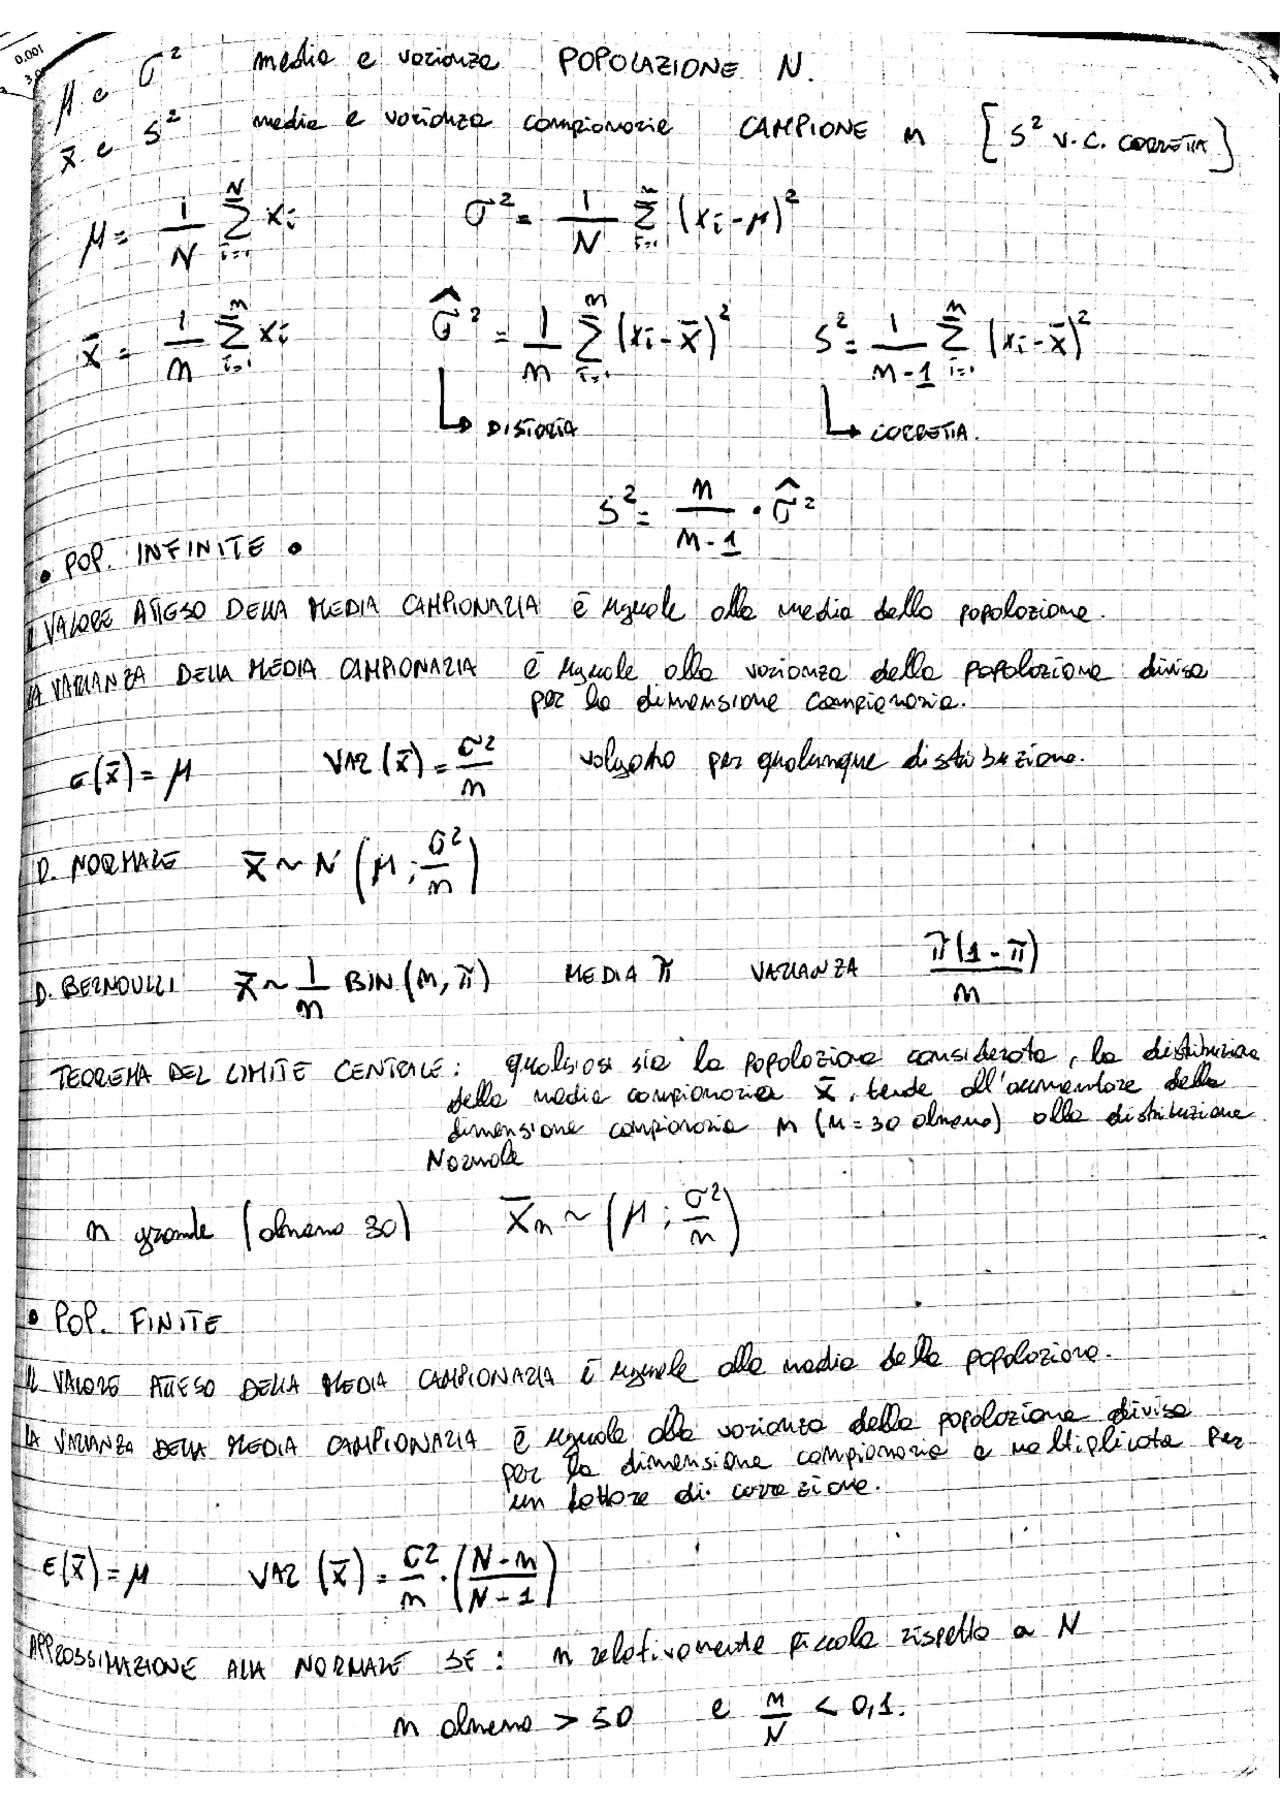 0.001
μ e σ² media e varianza POPOLAZIONE N.
x̄ e s² media e varianza campionarie CAMPIONE n [s² V.C. CORRETTA]
μ = 1/N Σ_{i=1}^{N} xi σ² = 1/N Σ_{i=1}^{n} (xi - μ)²
x̄ = 1/n Σ_{i=1}^{n} xi σ̂² = 1/n Σ_{i=1}^{n} (xi - x̄)² s² = 1/(n-1) Σ_{i=1}^{n} (xi - x̄)²
↳ DISTORTA ↳ CORRETTA.
s² = n/(n-1) · σ̂²
• POP. INFINITE •
IL VALORE ATTESO DELLA MEDIA CAMPIONARIA è uguale alla media della popolazione.
LA VARIANZA DELLA MEDIA CAMPIONARIA è uguale alla varianza della popolazione divisa
per la dimensione campionaria.
E(x̄) = μ VAR(x̄) = σ²/n valgono per qualunque distribuzione.
D. NORMALE x̄ ~ N (μ ; σ²/n)
D. BERNOULLI x̄ ~ 1/n BIN (n, π) MEDIA π VARIANZA π(1 - π)/n
TEOREMA DEL LIMITE CENTRALE : qualsiasi sia la popolazione considerata, la distribuzione
della media campionaria x̄, tende all'aumentare della
dimensione campionaria n (n = 30 almeno) alla distribuzione
Normale
n grande (almeno 30) x̄n ~ (μ ; σ²/n)
• POP. FINITE
IL VALORE ATTESO DELLA MEDIA CAMPIONARIA è uguale alla media della popolazione.
LA VARIANZA DELLA MEDIA CAMPIONARIA è uguale alla varianza della popolazione divisa
per la dimensione campionaria e moltiplicata per
un fattore di correzione.
E(x̄) = μ VAR (x̄) = σ²/n · ((N - n)/(N - 1))
APPROSSIMAZIONE ALLA NORMALE SE : n relativamente piccola rispetto a N
n almeno > 50 e n/N < 0,1.